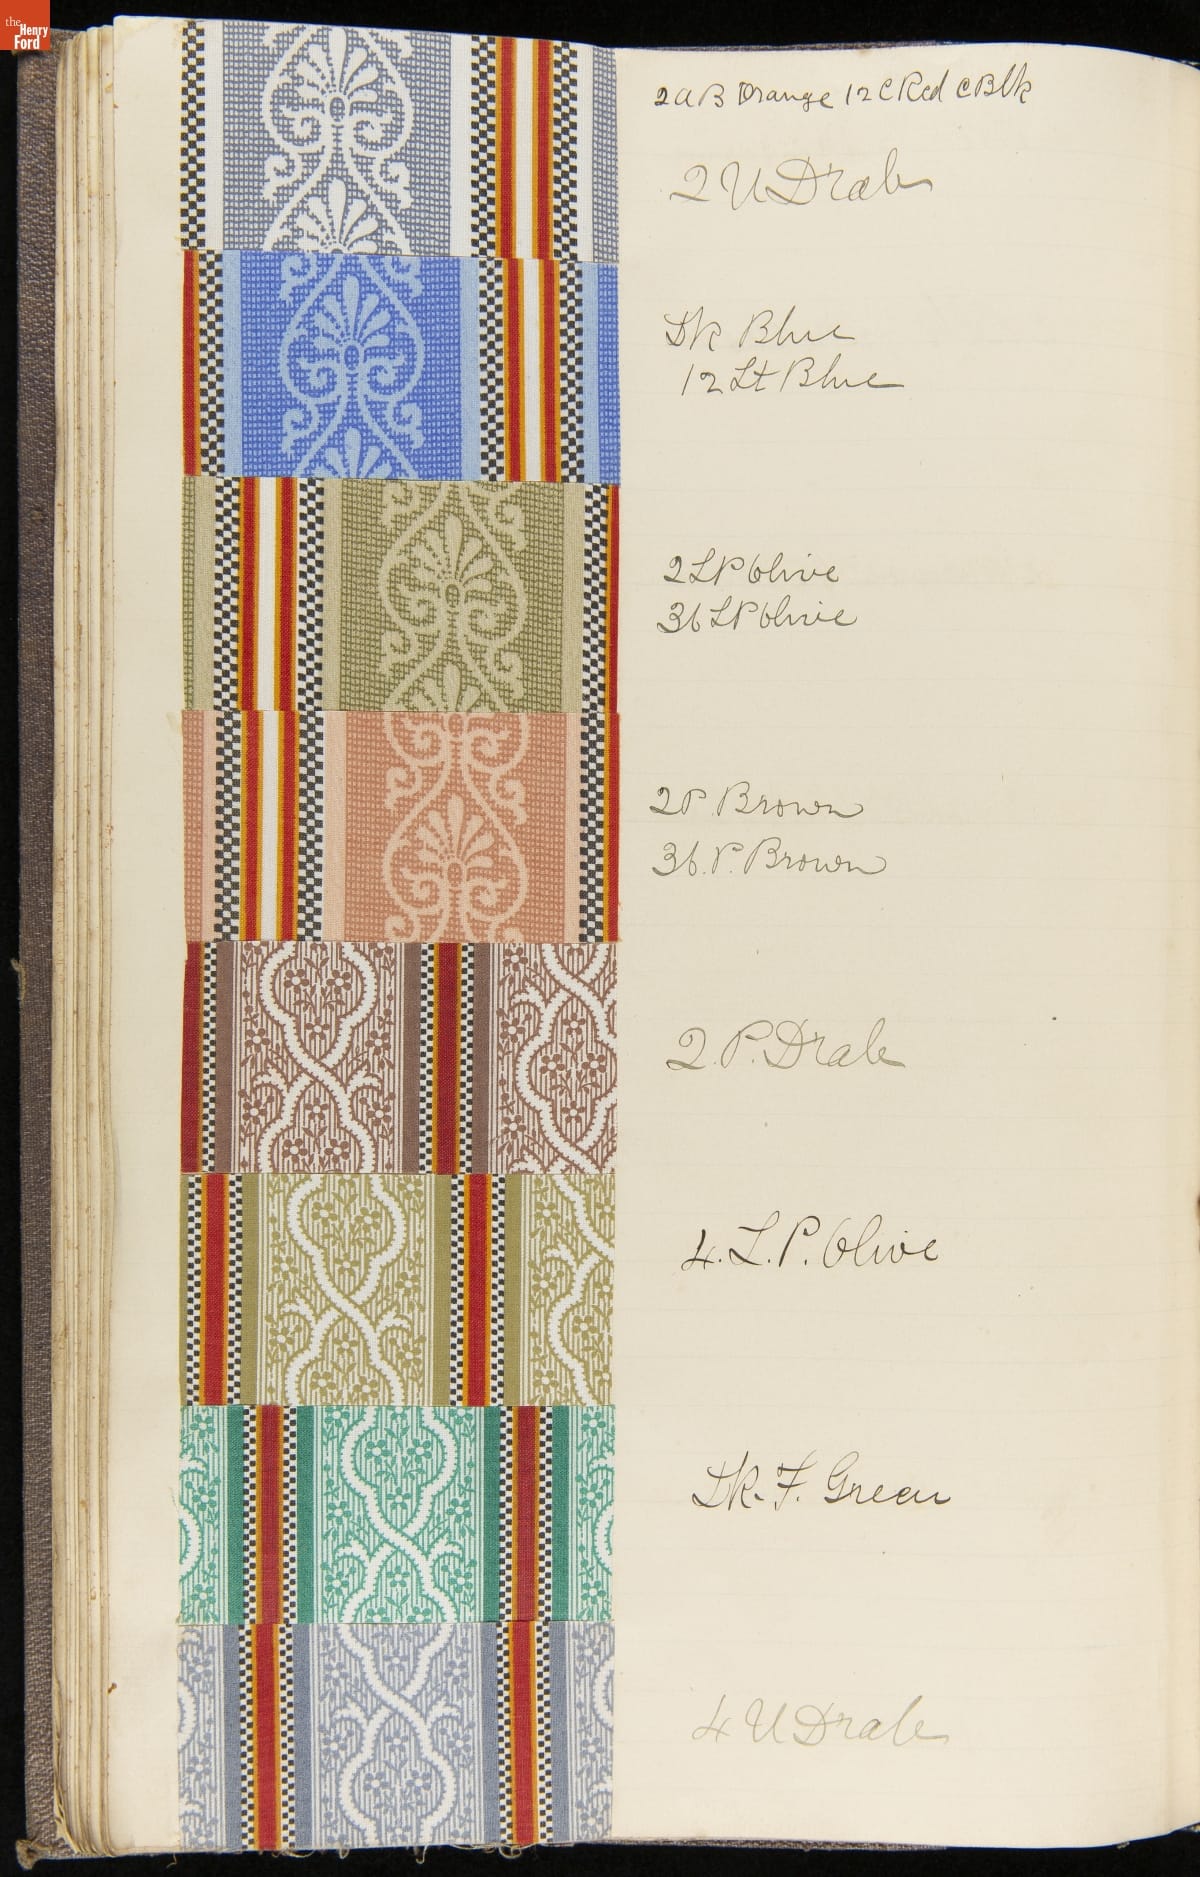 the
Henry
Ford
2 A B Orange 12 C Red C Blk
2 U Drab
Dk Blue
12 Lt Blue
2 LP Olive
36 LP Olive
2 P. Brown
36. P. Brown
2. P. Drab
4. L. P. Olive
Dk. F. Green
4 U Drab